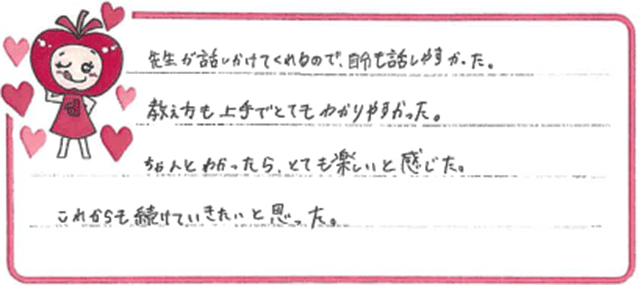 先生が話しかけてくれるので、自分も話しやすかった。
教え方も上手でとてもわかりやすかった。
ちゃんとわかったら、とても楽しいと感じた。
これからも続けていきたいと思った。